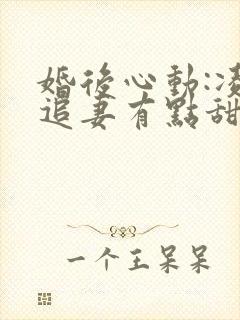 婚後心動:凌
追妻有點甜
一个王呆呆